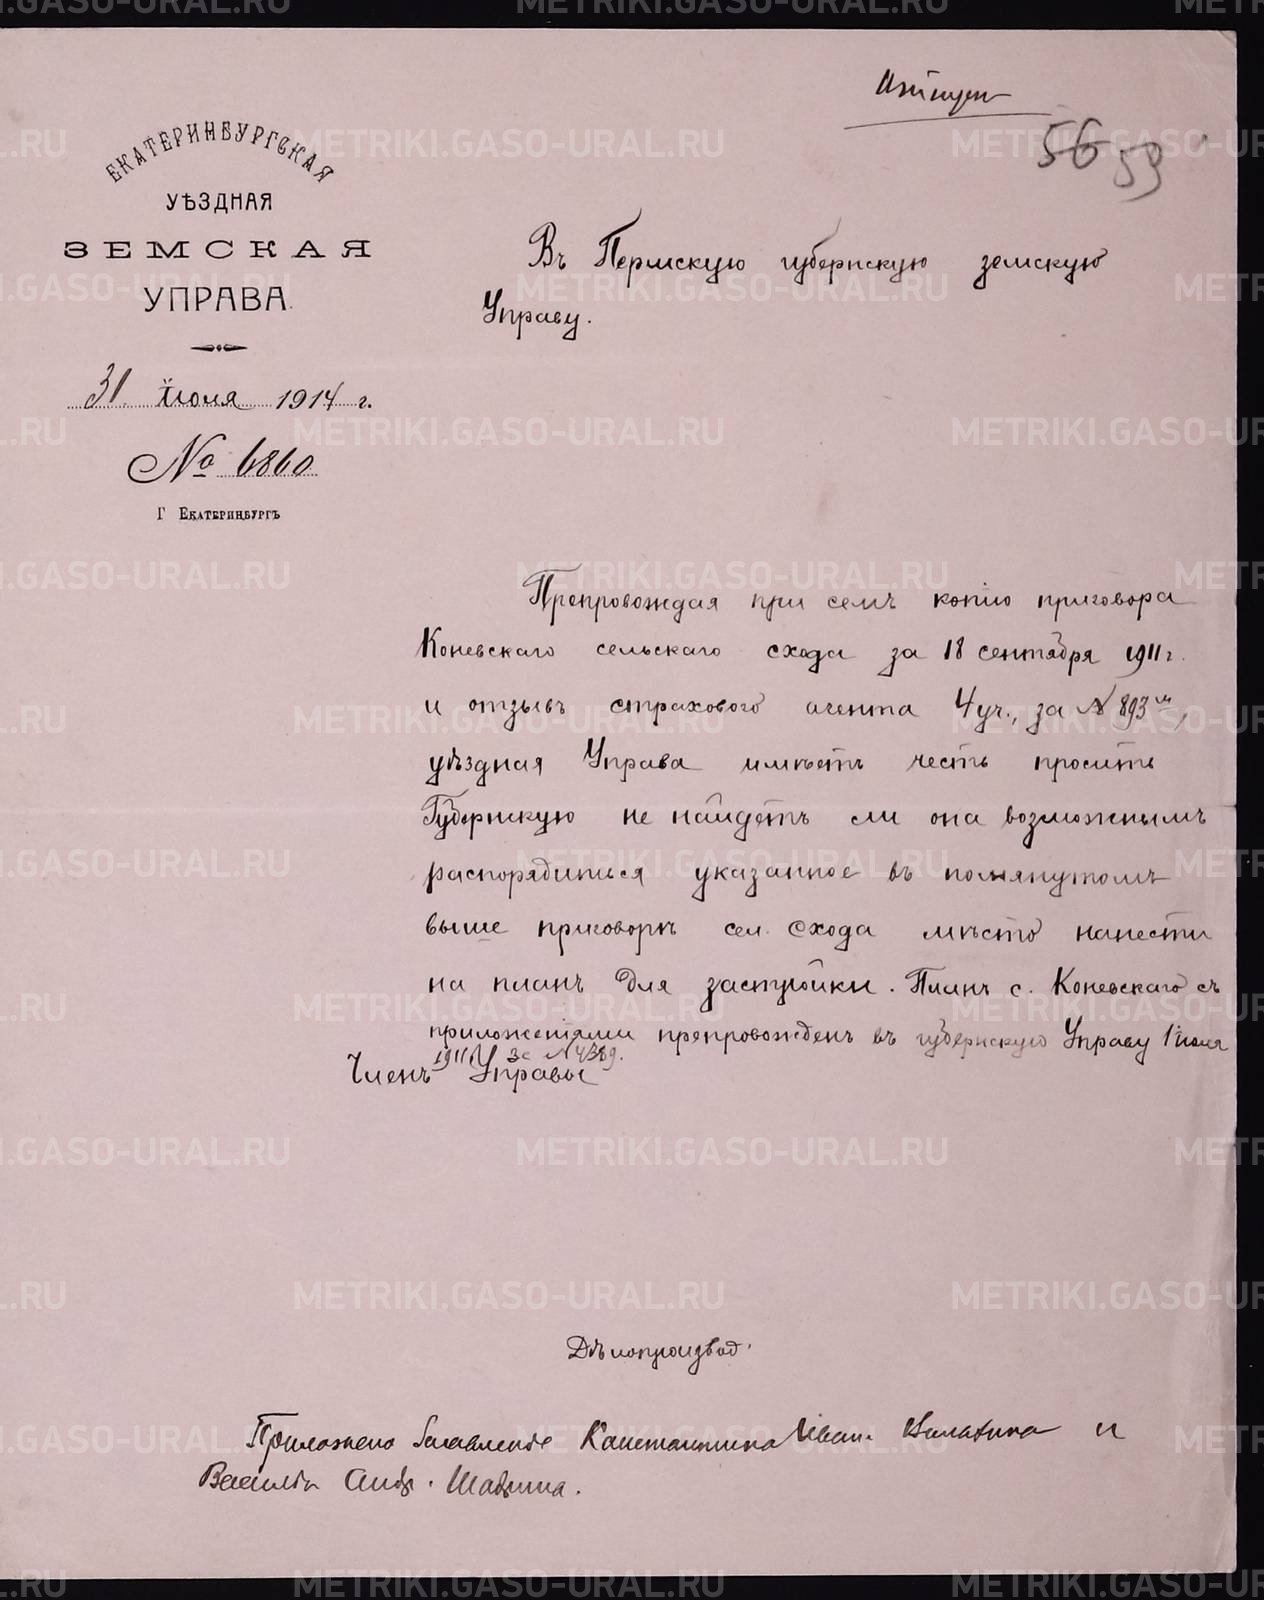 56 59
ЕКАТЕРИНБУРГСКАЯ
УѢЗДНАЯ
ЗЕМСКАЯ
УПРАВА.
31 Іюля 1914 г.
№ 6860
Г ЕКАТЕРИНБУРГЪ
Въ Пермскую губернскую земскую
Управу.
Препровождая при семъ копію приговора
Коневскаго сельскаго схода за 18 сентября 1911 г.
и отзывъ страхового агента 4 уч., за № 893
уѣздная Управа имѣетъ честь просить
Губернскую не найдетъ ли она возможнымъ
распорядиться указанное въ помянутомъ
выше приговорѣ сел. Схода мѣсто нанести
на планъ для застройки. Планъ с. Коневскаго съ
приложеніями препровожденъ въ губернскую Управу 1 іюля
1911 г. за № 4389.
Членъ Управы
Дѣлопроизвод.
Приложено Заявленіе Константина Иван. и
Василья Андр. Шабрина.
METRIKI.GASO-URAL.RU